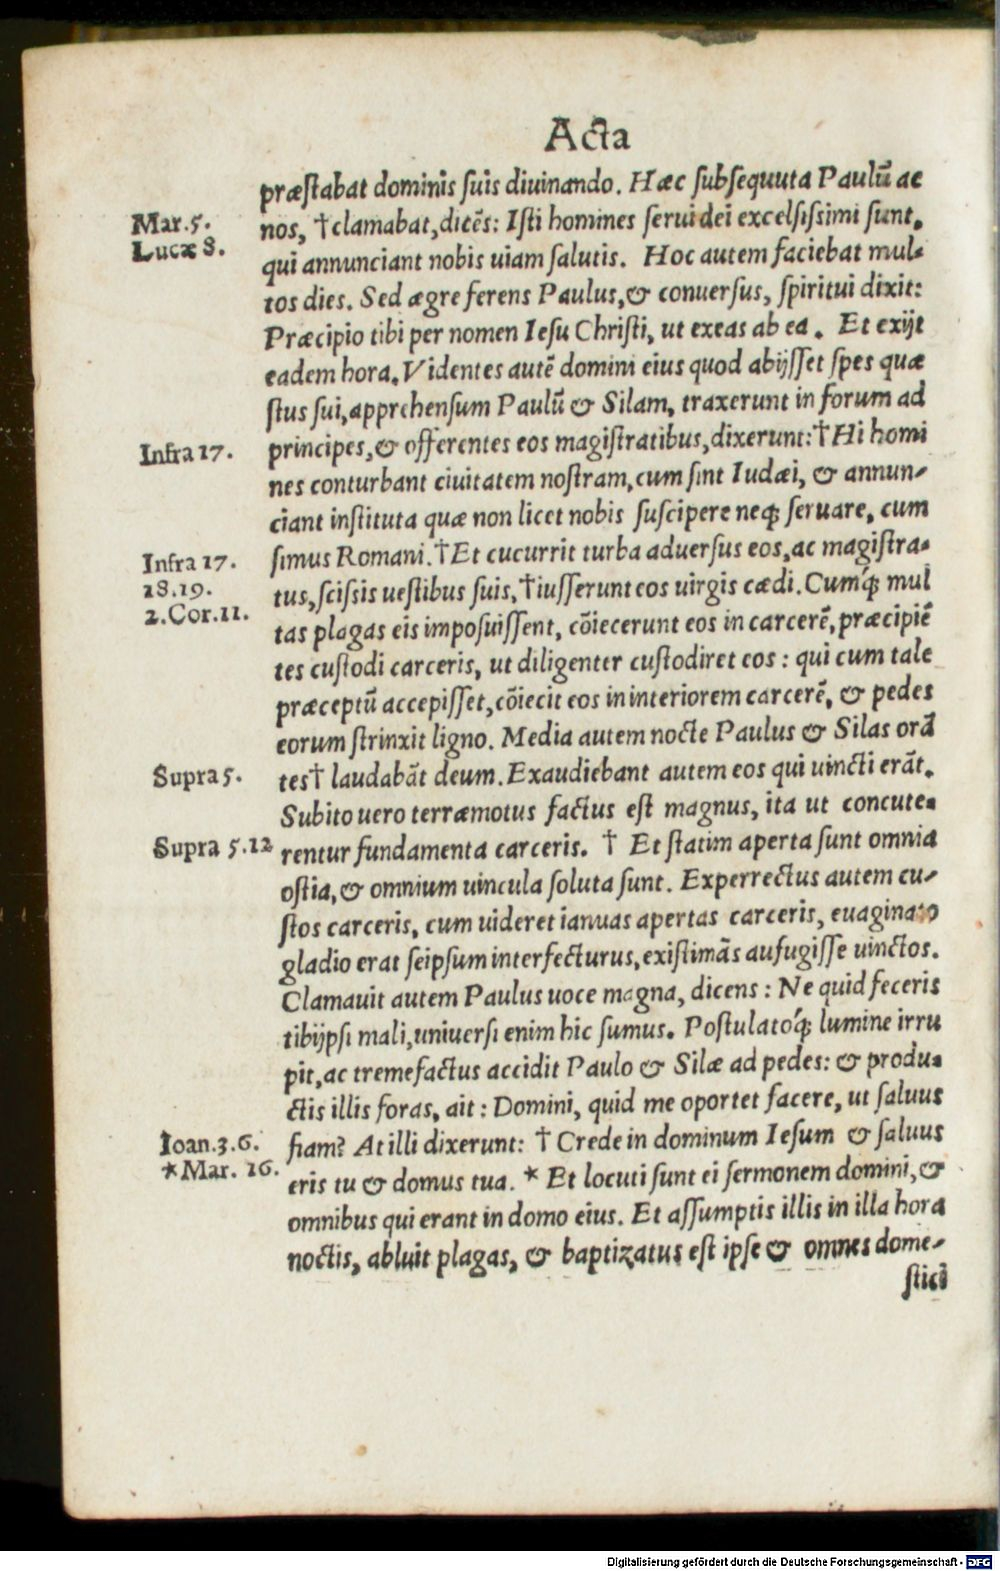 Acta
præstabat dominis suis diuinando. Hæc subsequuta Paulũ ac
Mar. 5.
nos, †clamabat, dicẽs: Isti homines serui dei excelsissimi sunt,
Lucæ 8.
qui annunciant nobis uiam salutis. Hoc autem faciebat mul-
tos dies. Sed ægre ferens Paulus, & conuersus, spiritui dixit:
Præcipio tibi per nomen Iesu Christi, ut exeas ab ea. Et exijt
eadem hora. Videntes autẽ domini eius quod abijsset spes quæ
stus sui, apprehensum Paulũ & Silam, traxerunt in forum ad
Infra 17.
principes, & offerentes eos magistratibus, dixerunt: † Hi homi
nes conturbant ciuitatem nostram, cum sint Iudæi, & annun-
ciant instituta quæ non licet nobis suscipere neq; seruare, cum
Infra 17.
simus Romani. † Et cucurrit turba aduersus eos, ac magistra-
18.19.
tus, scissis uestibus suis, †iusserunt eos uirgis cædi. Cumq́; mul
2.Cor.11.
tas plagas eis imposuissent, cõiecerunt eos in carcerẽ, præcipiẽ
tes custodi carceris, ut diligenter custodiret eos: qui cum tale
præceptũ accepisset, cõiecit eos in interiorem carcerẽ, & pedes
eorum strinxit ligno. Media autem nocte Paulus & Silas orã
Supra 5.
tes† laudabãt deum. Exaudiebant autem eos qui uincti erãt.
Subito uero terræmotus factus est magnus, ita ut concute-
Supra 5.12
rentur fundamenta carceris. † Et statim aperta sunt omnia
ostia, & omnium uincula soluta sunt. Experrectus autem cu-
stos carceris, cum uideret ianuas apertas carceris, euaginato
gladio erat seipsum interfecturus, existimãs aufugisse uinctos.
Clamauit autem Paulus uoce magna, dicens: Ne quid feceris
tibijpsi mali, uniuersi enim hic sumus. Postulatoq́; lumine irru
pit, ac tremefactus accidit Paulo & Silæ ad pedes: & produ-
ctis illis foras, ait: Domini, quid me oportet facere, ut saluus
Ioan.3.6.
fiam? At illi dixerunt: † Crede in dominum Iesum & saluus
*Mar. 16.
eris tu & domus tua. * Et locuti sunt ei sermonem domini, &
omnibus qui erant in domo eius. Et assumptis illis in illa hora
noctis, abluit plagas, & baptizatus est ipse & omnes dome-
stici
Digitalisierung gefördert durch die Deutsche Forschungsgemeinschaft - DFG